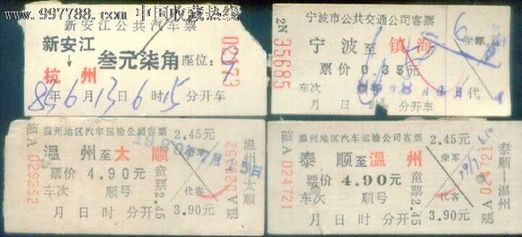 www.997788.com 中国收藏热线
新安江公共汽车票
新安江
↓
杭州
叁元柒角
座位:
85年6月13日6时15分开车
宁波市公共交通公司客票
宁波至镇海
票价 0.35元
车次
代客
2N 95685
温州地区汽车运输公司客票
温州至太顺
票价 4.90元
车次 顺号
月 日 时 分开
2.45元
荣军
童票
代客
3.90元
温A 029252
温州—太顺
温A 029252
温州地区汽车运输公司客票
泰顺至温州
票价 4.90元
车次 顺号
月 日 时 分开
2.45元
荣军
童票
代客
3.90元
温A 024721
泰顺—温州
温A 024721